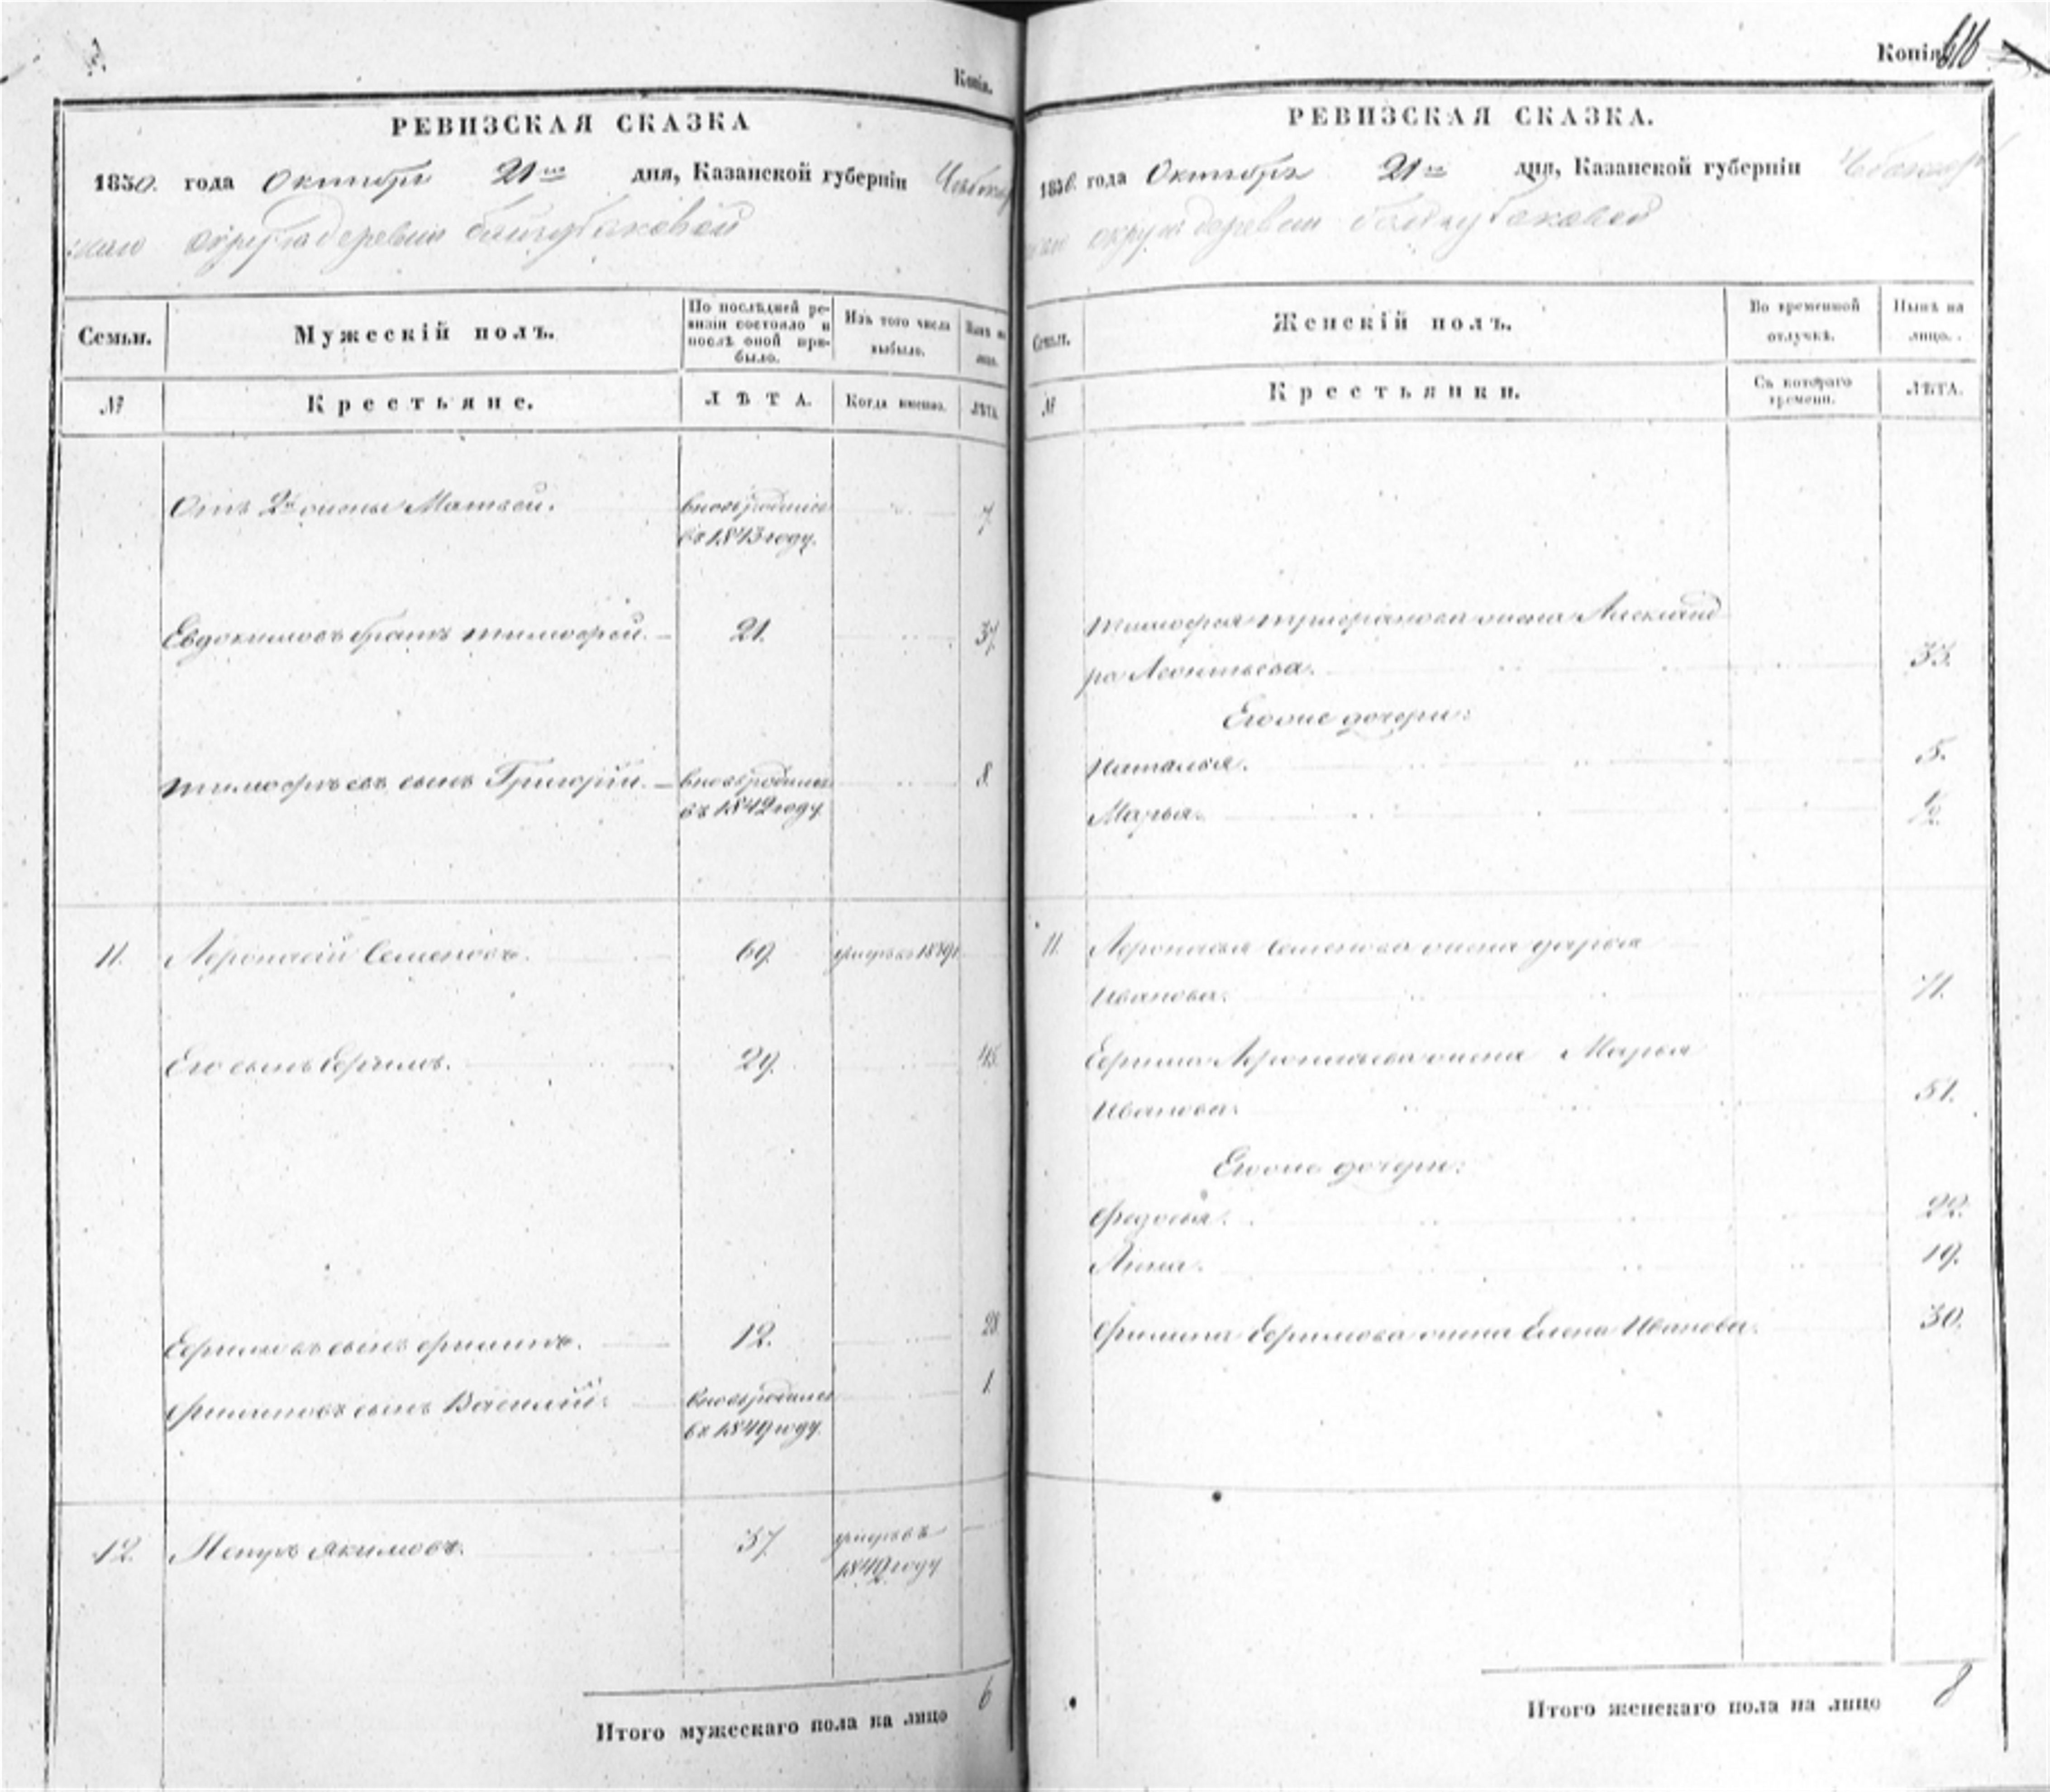 Копія.
РЕВИЗСКАЯ СКАЗКА
1850. года Октября 21го дня, Казанской губерніи Чебокар
скаго округа деревни Байгубаковой
Семьи.
Мужескій полъ.
По послѣдней ре-
визіи состояло и
послѣ оной при-
было.
Изъ того числа
выбыло.
Нынѣ на
лицо.
№
Крестьяне.
ЛѢТА.
Когда именно.
ЛѢТА.
Отъ 2й жены Матвей.
вновь родился
въ 1843 году.
7
Евдокимовъ братъ Тимофей.
21.
37.
Тимофѣевъ сынъ Григорій.
вновь родился
въ 1842 году
8.
11.
Афонасій Семеновъ.
69.
умеръ въ 1839
Его сынъ Ефимъ.
29.
45.
Ефимовъ сынъ Филипъ.
12.
28.
Филиповъ сынъ Василій.
вновь родился
въ 1849 году.
1.
12.
Петръ Якимовъ.
37.
умеръ въ
1849 году
Итого мужескаго пола на лицо
6
Копія
616
РЕВИЗСКАЯ СКАЗКА.
1850. года Октября 21го дня, Казанской губерніи Чебокар
скаго округа деревни Байгубаковой
Семьи.
Женскій полъ.
Во временной
отлучкѣ.
Нынѣ на
лицо.
№
Крестьянки.
Съ котораго
времени.
ЛѢТА.
Тимофея жена Александ
ра Леонтьева.
33.
Ево же дочери:
Наталья.
5.
Марья.
½.
11.
Афонасья Семенова жена Дарья
Иванова.
71.
Ефима Афонасьева жена Марья
Иванова.
51.
Ево же дочери:
Федосья.
22.
Анна.
19.
Филипа Ефимова жена Елена Иванова.
30.
Итого женскаго пола на лицо
8